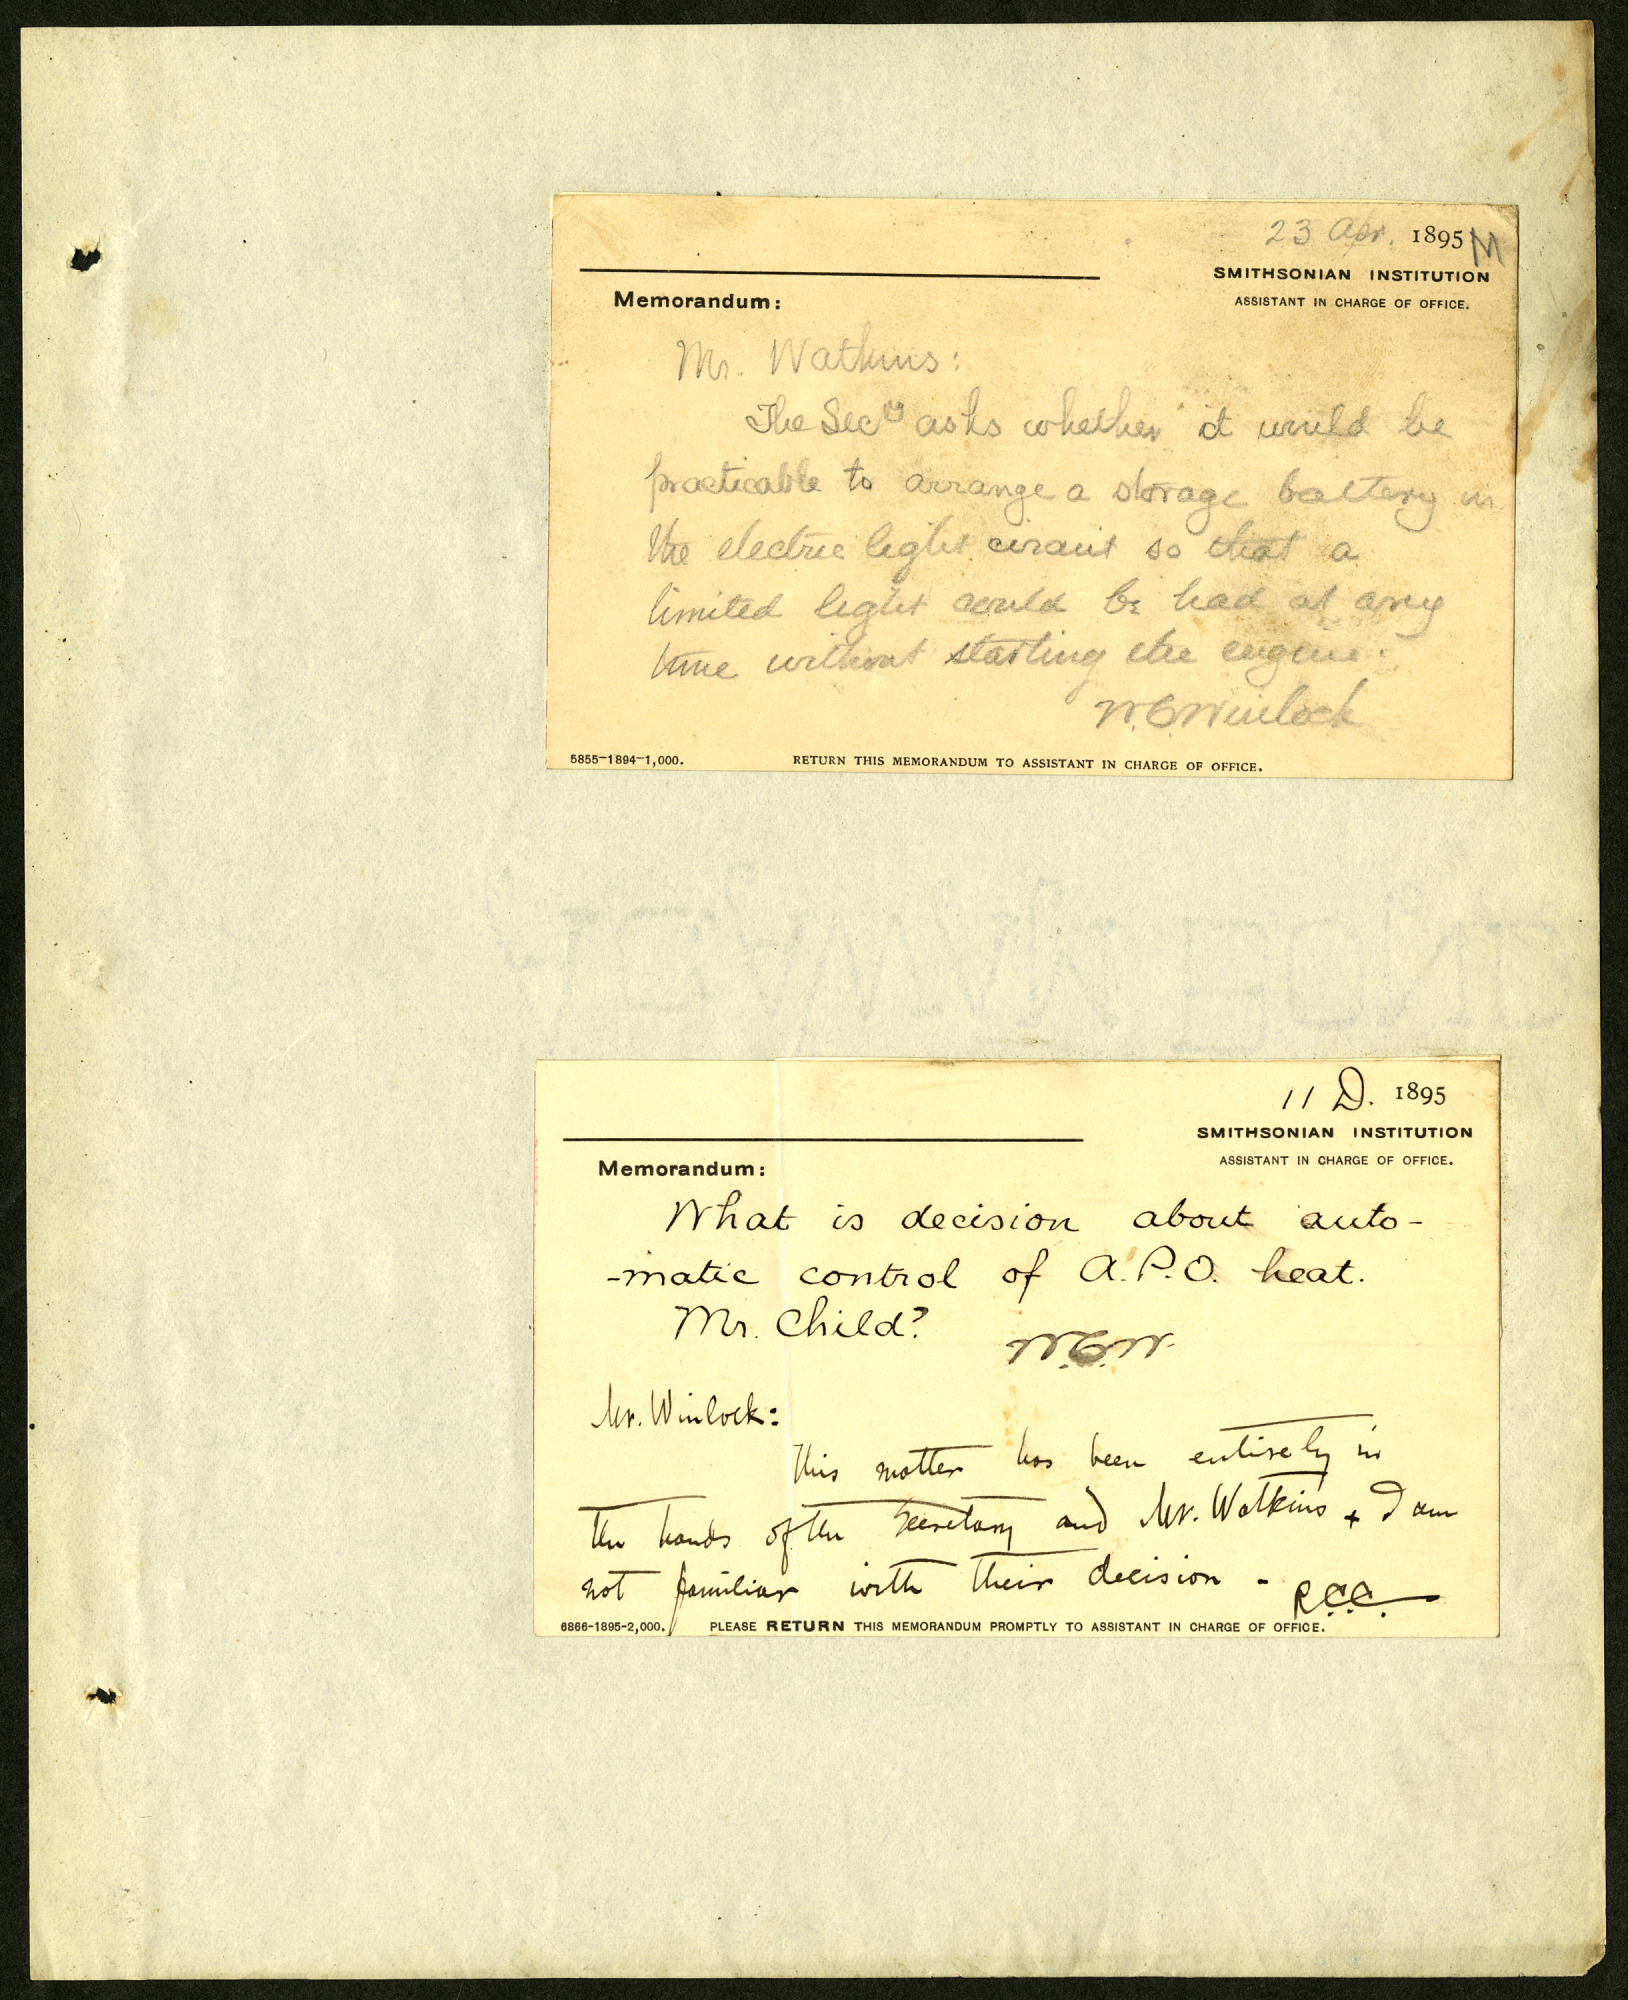 23 Apr. 1895 M
SMITHSONIAN INSTITUTION
ASSISTANT IN CHARGE OF OFFICE.
Memorandum:
Mr. Watkins:
The Secy asks whether it would be
practicable to arrange a storage battery in
the electric light circuit so that a
limited light could be had at any
time without starting the engine.
W.C. Winlock
5855-1894-1,000. RETURN THIS MEMORANDUM TO ASSISTANT IN CHARGE OF OFFICE.
11 D. 1895
SMITHSONIAN INSTITUTION
ASSISTANT IN CHARGE OF OFFICE.
Memorandum:
What is decision about auto-
-matic control of A.P.O. heat.
Mr. Child?
W.C.W.
Mr. Winlock:
This matter has been entirely in
the hands of the Secretary and Mr. Watkins + I am
not familiar with their decision -
R.C.C.
6866-1895-2,000. PLEASE RETURN THIS MEMORANDUM PROMPTLY TO ASSISTANT IN CHARGE OF OFFICE.